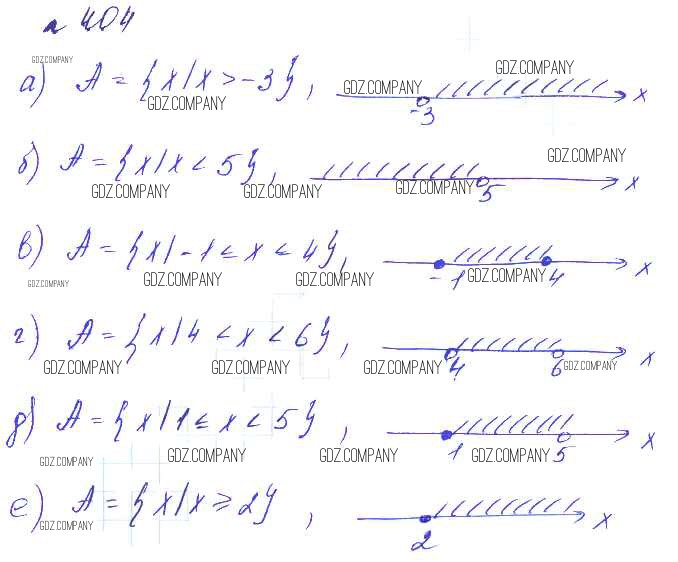 № 404
GDZ.COMPANY GDZ.COMPANY
а) A = {x/x > -3}, GDZ.COMPANY x
GDZ.COMPANY -3
GDZ.COMPANY
б) A = {x/x < 5}, x
GDZ.COMPANY GDZ.COMPANY GDZ.COMPANY 5
в) A = {x/-1 ≤ x ≤ 4}, x
GDZ.COMPANY GDZ.COMPANY GDZ.COMPANY -1 GDZ.COMPANY 4
г) A = {x/4 < x < 6}, x
GDZ.COMPANY GDZ.COMPANY GDZ.COMPANY 4 6 GDZ.COMPANY
д) A = {x/1 ≤ x < 5}, x
GDZ.COMPANY GDZ.COMPANY GDZ.COMPANY 1 GDZ.COMPANY 5
е) A = {x/x ≥ 2}, x
GDZ.COMPANY 2